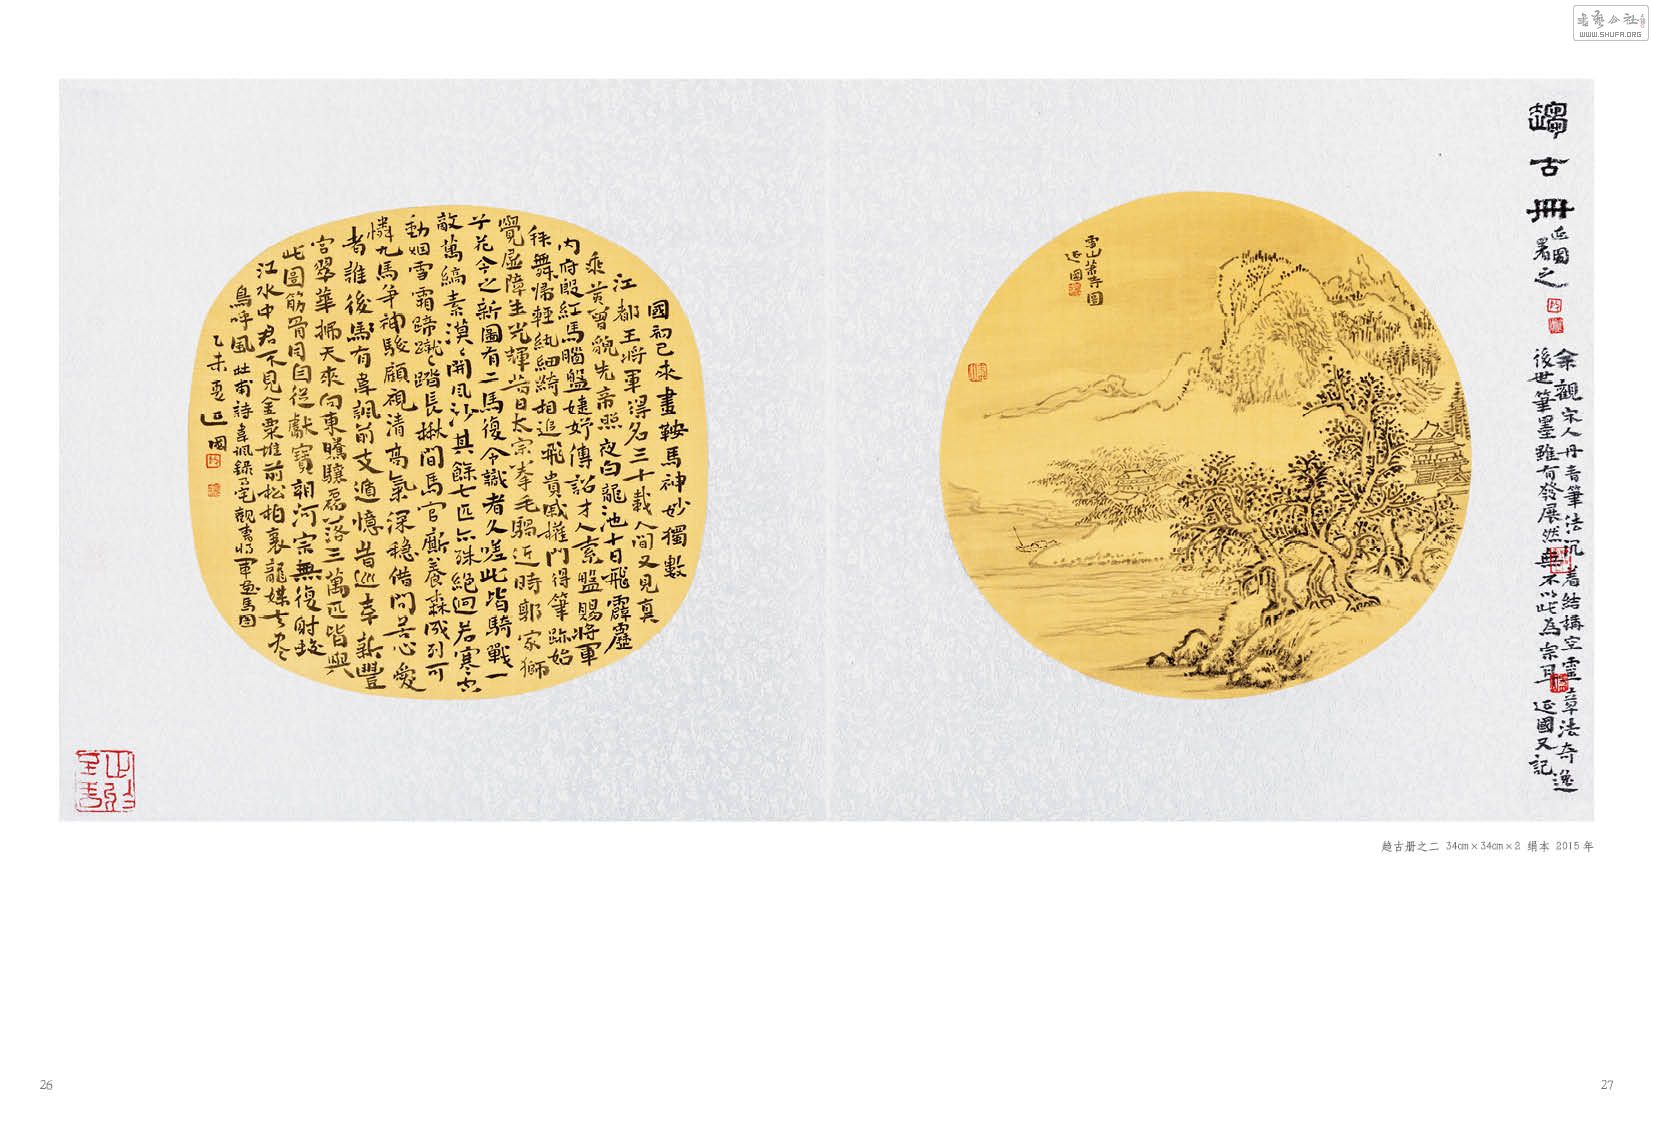 書藝公社
WWW.SHUFA.ORG
趨古冊
延國署之
余觀宋人丹青筆法沉着結構空靈章法奇逸
後世筆墨雖有發展然無不以此為宗耳 延國又記
雪山蕭寺圖
延國
國初已來畫鞍馬神妙獨數
江都王將軍得名三十載人間又見真
乘黃曾貌先帝照夜白龍池十日飛霹靂
內府殷紅馬腦盤婕妤傳詔才人索盤賜將軍
拜舞歸輕紈細綺相追飛貴戚權門得筆跡始
覺屏障生光輝昔日太宗拳毛騧近時郭家獅
子花今之新圖有二馬復令識者久嗟此皆騎戰一
敵萬縞素漠々開風沙其餘七匹亦殊絕迥若寒空
動烟雪霜蹄蹴々踏長楸間馬官廝養森成列可
憐九馬爭神駿顧視清高氣深穩借問苦心愛
者誰後馬有韋諷前支遁憶昔巡幸新豐
宮翠華拂天來向東騰驤磊落三萬匹皆與
此圖筋骨同自從獻寶朝河宗無復射蛟
江水中君不見金粟堆前松柏裏龍媒去盡
鳥呼風 杜甫詩韋諷錄事宅觀曹將軍畫馬圖
乙未夏 延國
趋古册之二 34cm×34cm×2 绢本 2015年
26
27